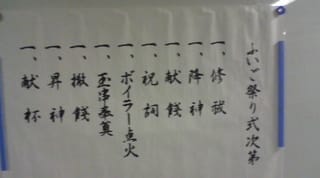 ふいご祭り式次第
一、修祓
一、降神
一、献餞
一、祝詞
一、ボイラー点火
一、玉串奉奠
一、撤餞
一、昇神
一、献杯